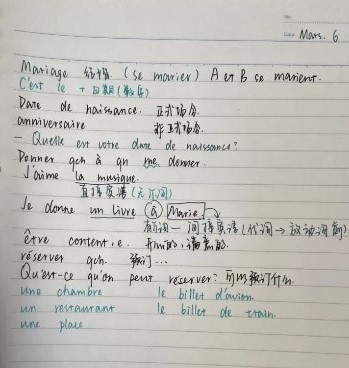 Mars. 6
Mariage 结婚. (se marier) A et B se marient.
C'est le + 日期(数字)
Date de naissance. 正式场合
anniversaire 非正式场合
- Quelle est votre date de naissance?
Donner qch à qn me donner.
J'aime la musique.
直接宾语(无介词)
Je donne un livre à Marie.
有词一间接宾语(代词→放谓词前)
être content.e. 开心的,满意的.
réserver qch. 预订...
Qu'est-ce qu'on peut réserver? 可以预订什么.
une chambre le billet d'avion.
un restaurant le billet de train.
une place